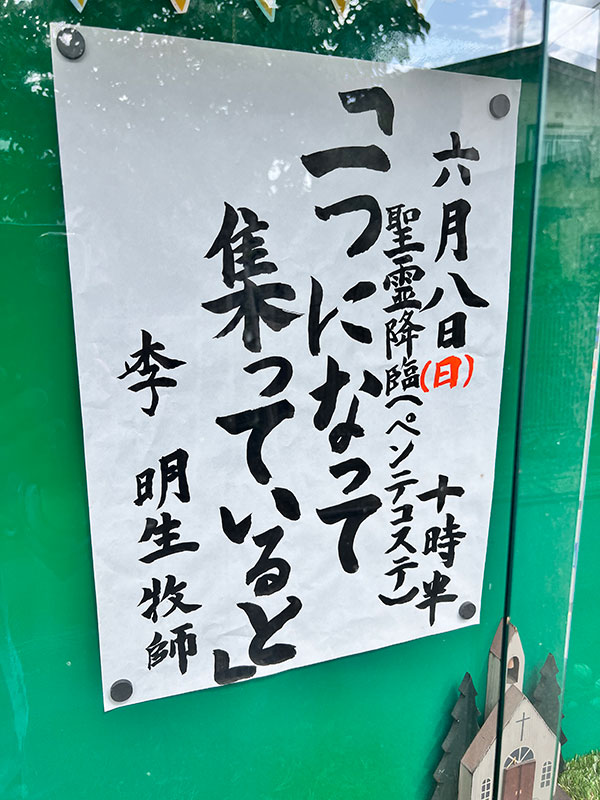 六月八日(日) 十時半
聖霊降臨(ペンテコステ)
「一つになって
集っていると」
李 明生牧師